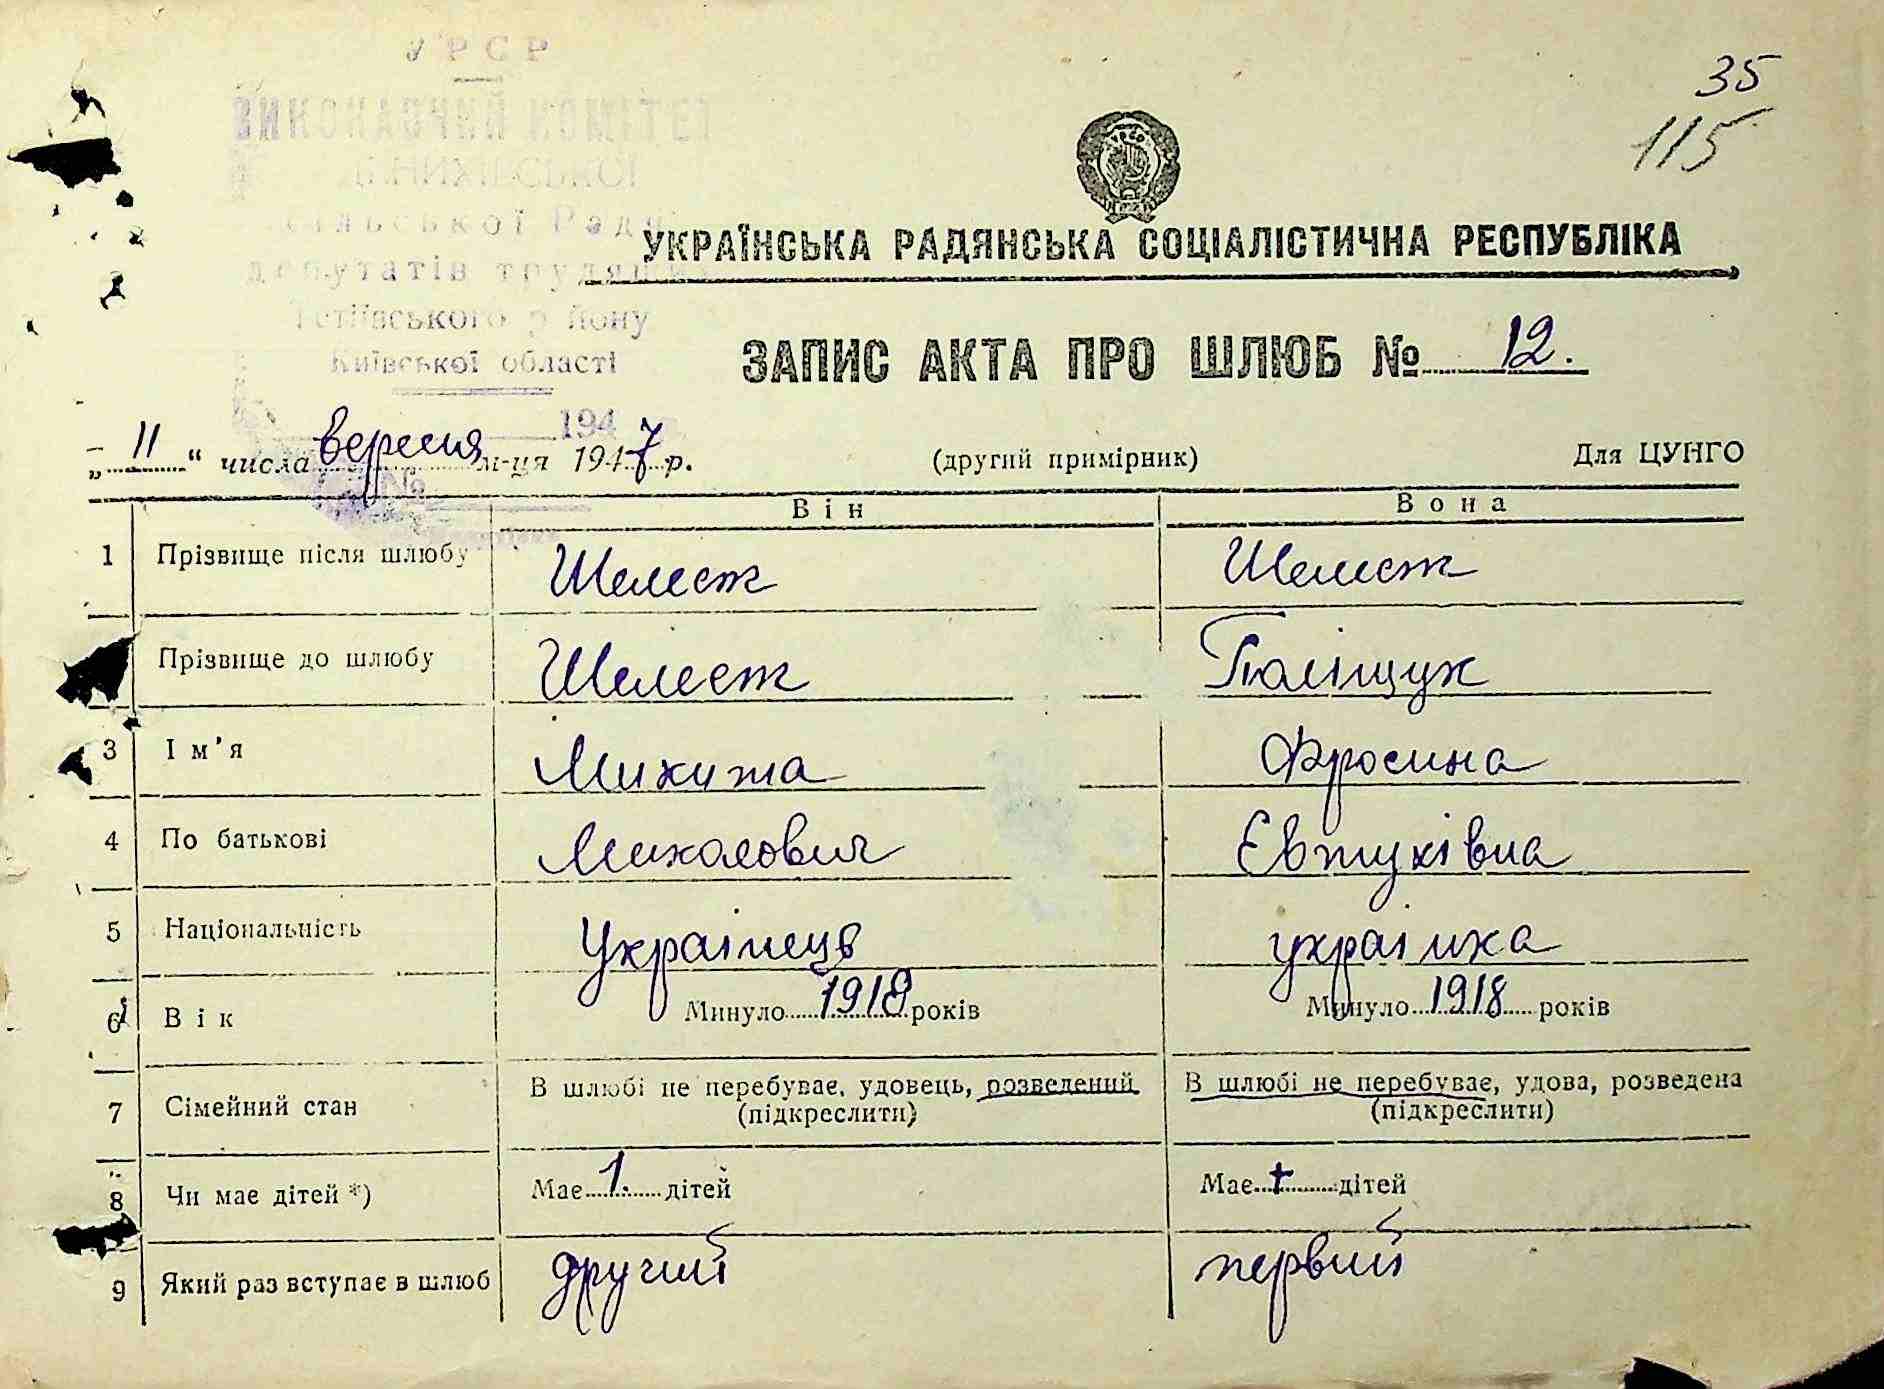 35
115
УРСР
ВИКОНАВЧИЙ КОМІТЕТ
сільської Ради
депутатів трудящих
Тетіївського району
Київської області
194
№
УКРАЇНСЬКА РАДЯНСЬКА СОЦІАЛІСТИЧНА РЕСПУБЛІКА
ЗАПИС АКТА ПРО ШЛЮБ № 12.
„11“ числа вересня м-ця 1947 р. (другий примірник) Для ЦУНГО
Він Вона
1 Прізвище після шлюбу Шелест Шелест
Прізвище до шлюбу Шелест Поліщук
3 Ім’я Микита Фросина
4 По батькові Михайлович Євтухівна
5 Національність Українець українка
6 Вік Минуло 1918 років Минуло 1918 років
7 Сімейний стан В шлюбі не перебуває, удовець, розведений В шлюбі не перебуває, удова, розведена
(підкреслити) (підкреслити)
8 Чи має дітей *) Має 1. дітей Має + дітей
9 Який раз вступає в шлюб другий первий